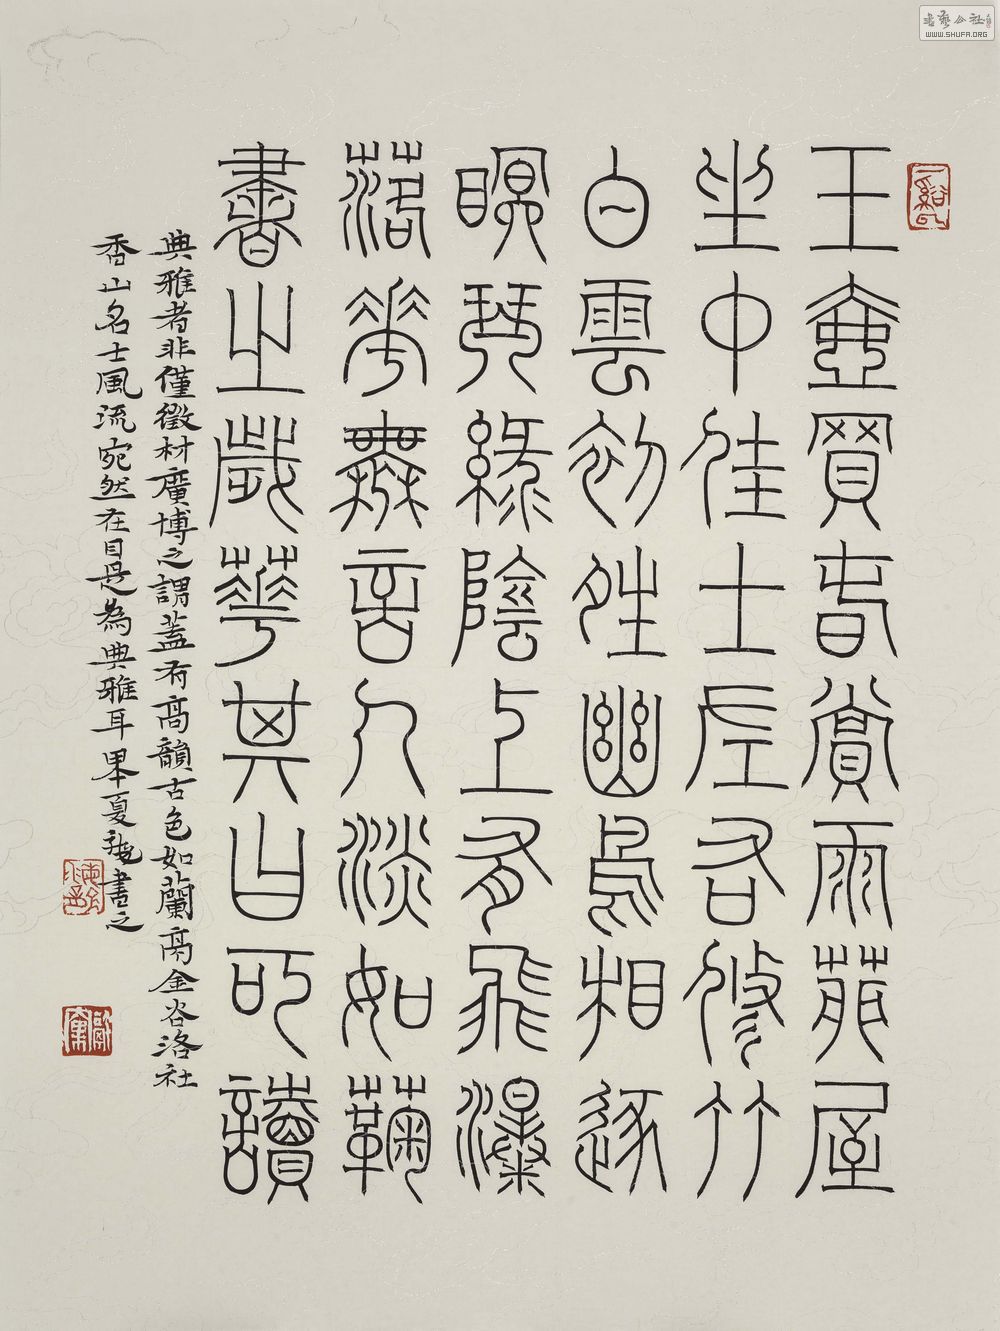 書藝公社
WWW.SHUFA.ORG
玉壺買春賞雨茆屋
坐中佳士左右修竹
白雲初夝幽鳥相逐
瞑琴綠陰上有飛瀑
落花無言人淡如蘜
書之歲華其曰可讀
典雅者非僅徵材廣博之謂蓋有高韻古色如蘭亭金谷洛社
香山名士風流宛然在目是為典雅耳 夏 書之